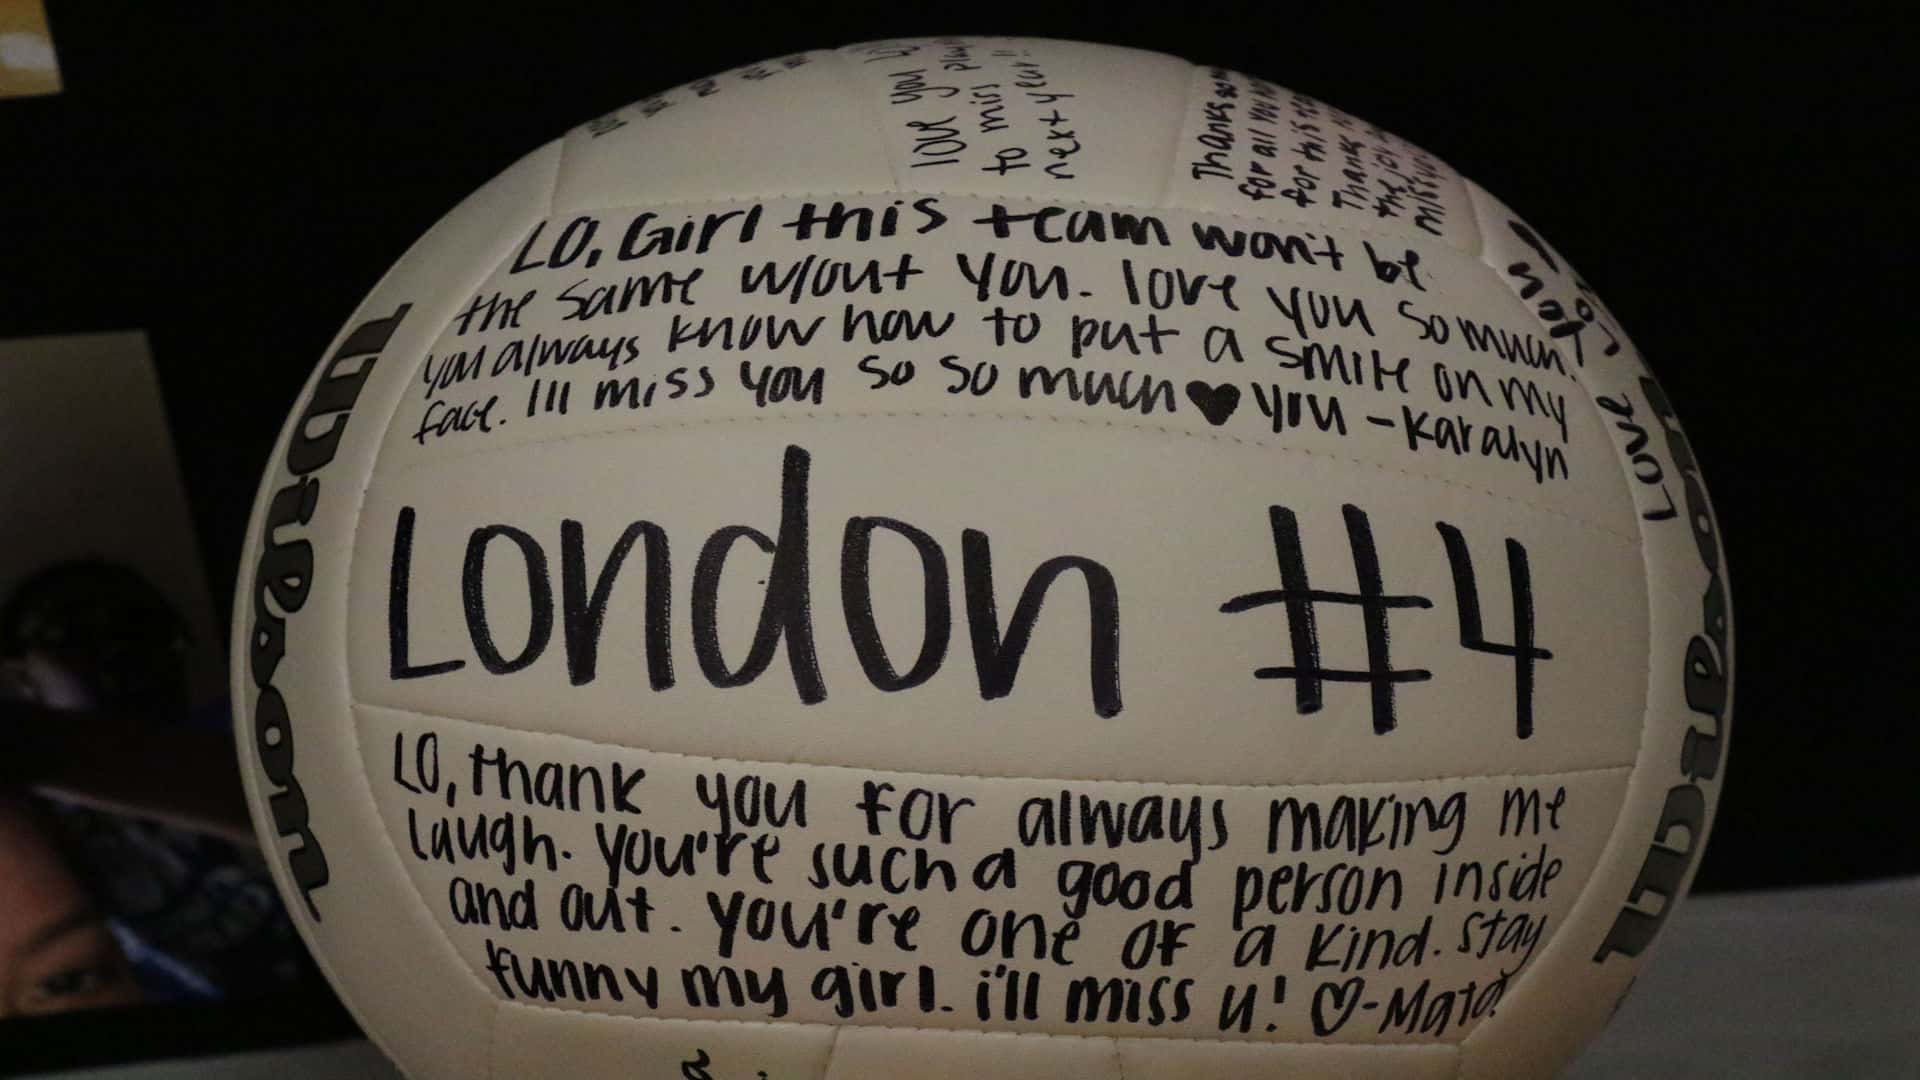 love you LO
to miss
next year!!
Thanks so
for all you
for this
Thanks
the joy
miss you
LO, Girl this team won't be
the same w/out you. love you so much.
you always know how to put a smile on my
face. I'll miss you so so much ♥ you - Karalyn
Love
Wilson
London #4
Wilson
LO, thank you for always making me
laugh. you're such a good person inside
and out. you're one of a kind. stay
funny my girl. i'll miss u! ♡ -Mata